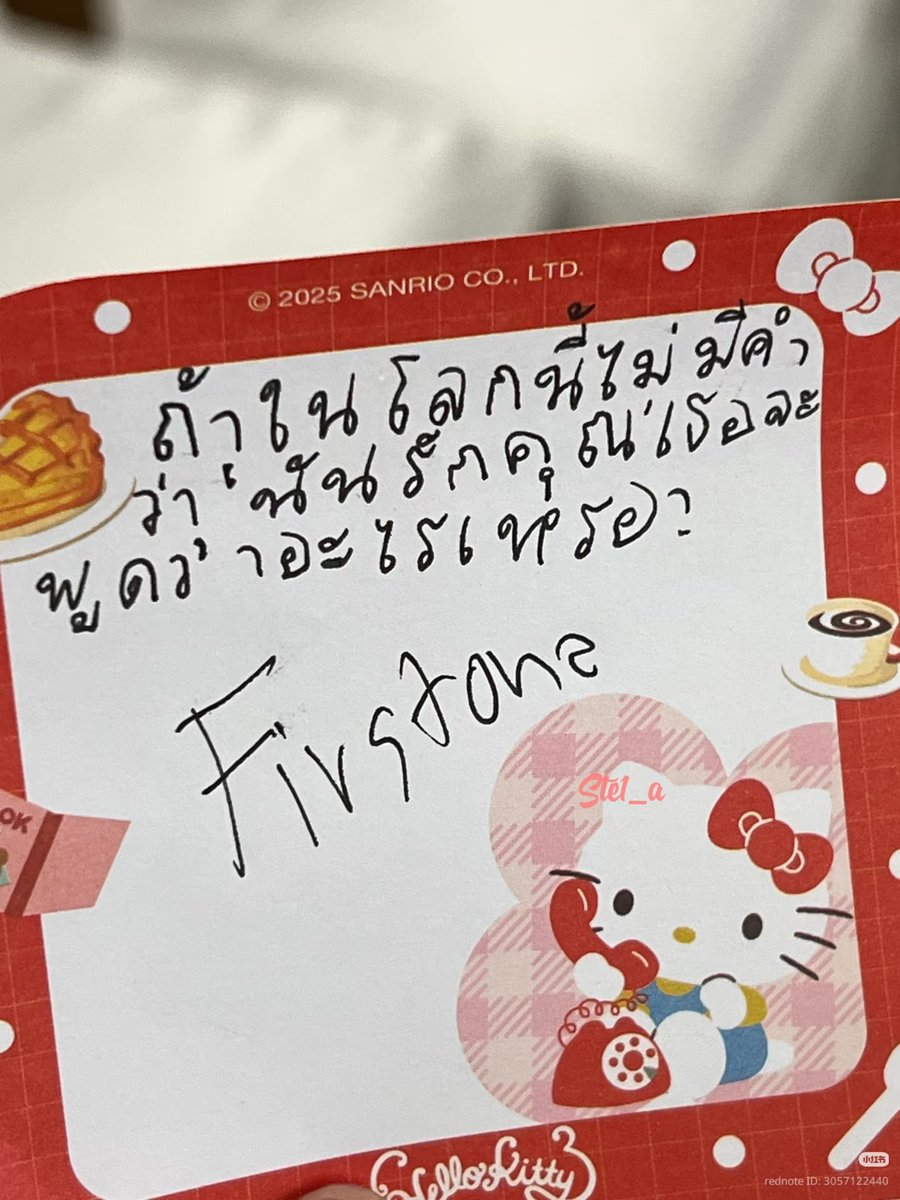 © 2025 SANRIO CO., LTD.
ถ้าในโลกนี้ไม่มีคำ
ว่า 'นันรักคุณ' เธอจะ
พูดว่าอะไรเหรอ?
Firstone
Stel_a
OK
Hello Kitty
小红书
rednote ID: 3057122440